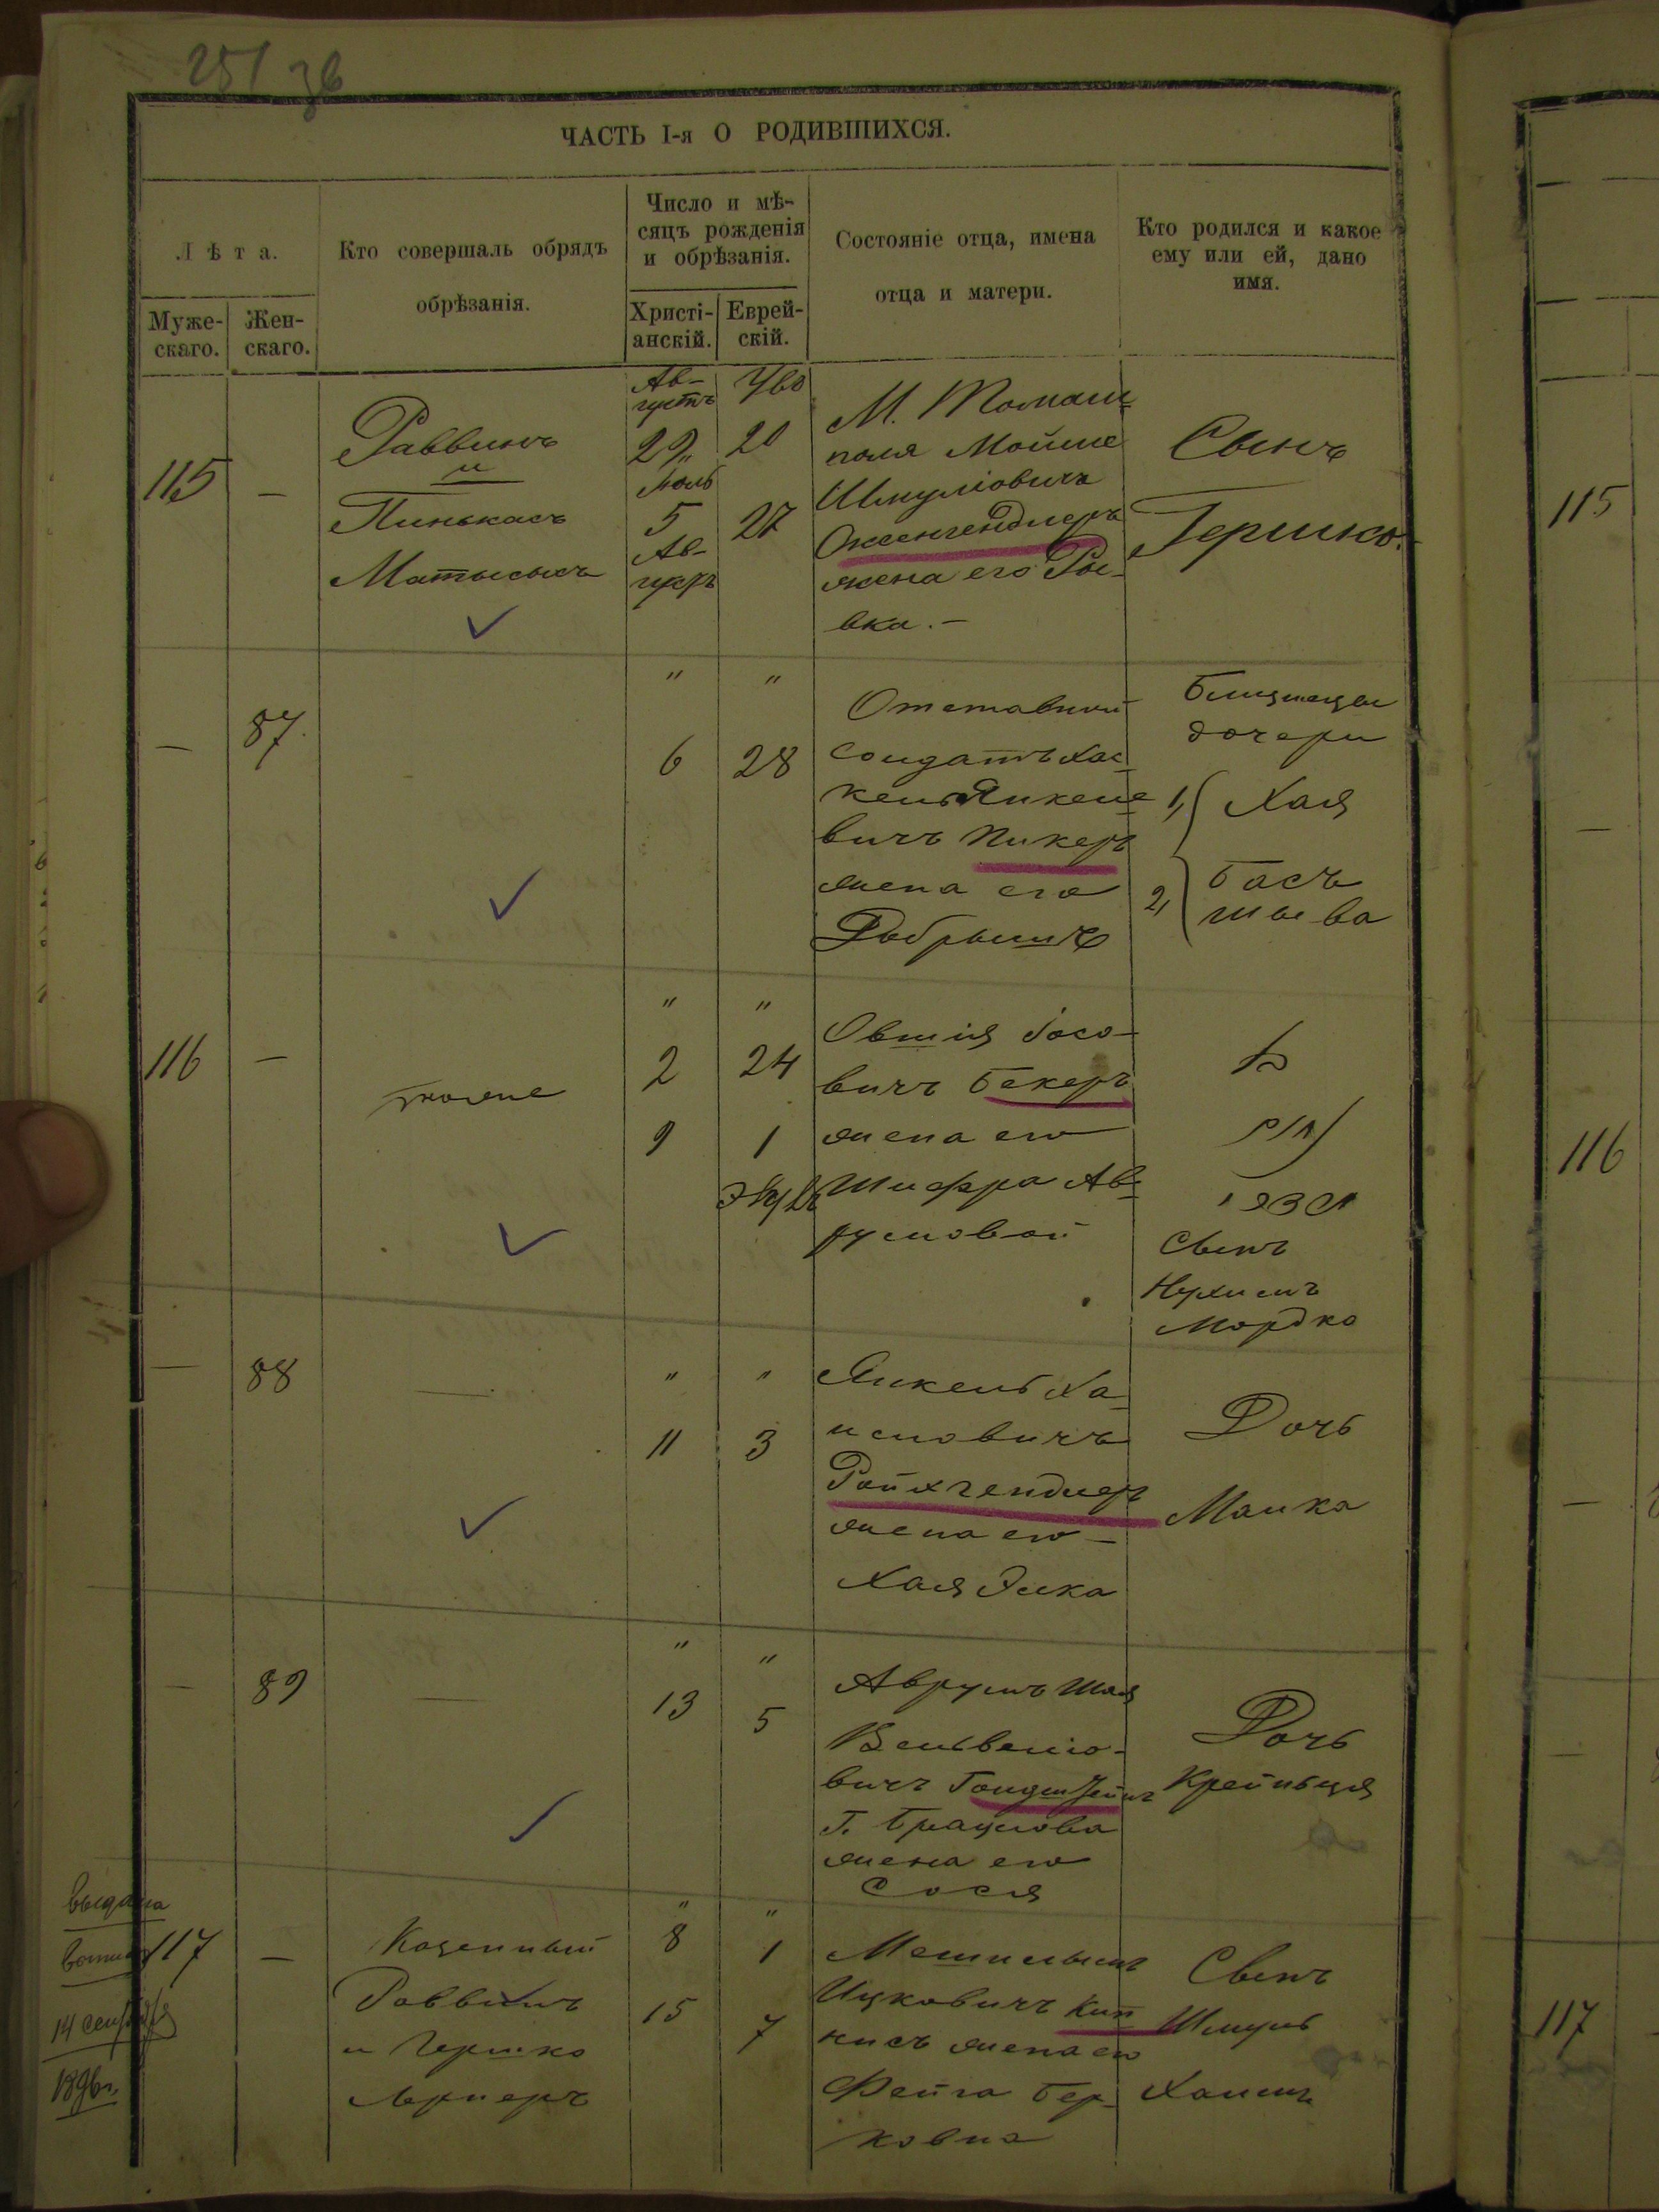 251 36
ЧАСТЬ I-я О РОДИВШИХСЯ.
Лѣта.
Муже-
скаго.
Жен-
скаго.
Кто совершаль обрядъ
обрѣзанія.
Число и мѣ-
сяцъ рожденія
и обрѣзанія.
Христі-
анскій.
Еврей-
скій.
Состояніе отца, имена
отца и матери.
Кто родился и какое
ему или ей, дано
имя.
115
—
Раввинъ
и
Пинькасъ
Матысысъ
Ав-
густъ
29
Іюль
5
Ав-
густъ
20
27
М. Томаш-
поля Мойше
Шмуліовичъ
Оксенгендлеръ
жена его Ры-
вка.-
Сынъ
Гершко.
—
87.
" "
6
28
Отставной
солдатъ Хас-
кель Янкеле-
вичъ Пикеръ
жена его
Добрышъ
Близнецы
дочери
1, Хая
2, Бася
шева
116
—
тоже
" "
2
24
9
1
Элулъ
Овшія Іосо-
вичъ Бекеръ
жена его
Шифра Ав-
румовой
Сынъ
Нухимъ
Мордко
—
88
—
" "
11
3
Янкель Ха-
имовичъ
Ройхгендлеръ
жена его -
Хая Элка
Дочь
Малка
—
89
—
" "
13
5
Аврумъ Шая
Вельвеліо-
вичъ Гольдштейнъ
Г. Брацлова
жена его
Сося
Дочь
Крейнця
выдана
14 сентября
1896 г.
117
—
Казенный
Раввинъ
и Гершко
Лернеръ
" "
8
1
15
7
Мешилымъ
Ицковичъ Кип-
нисъ жена его
Фейга Бер-
ковна
Сынъ
Шмуль
Хаимъ
115
—
116
—
—
117